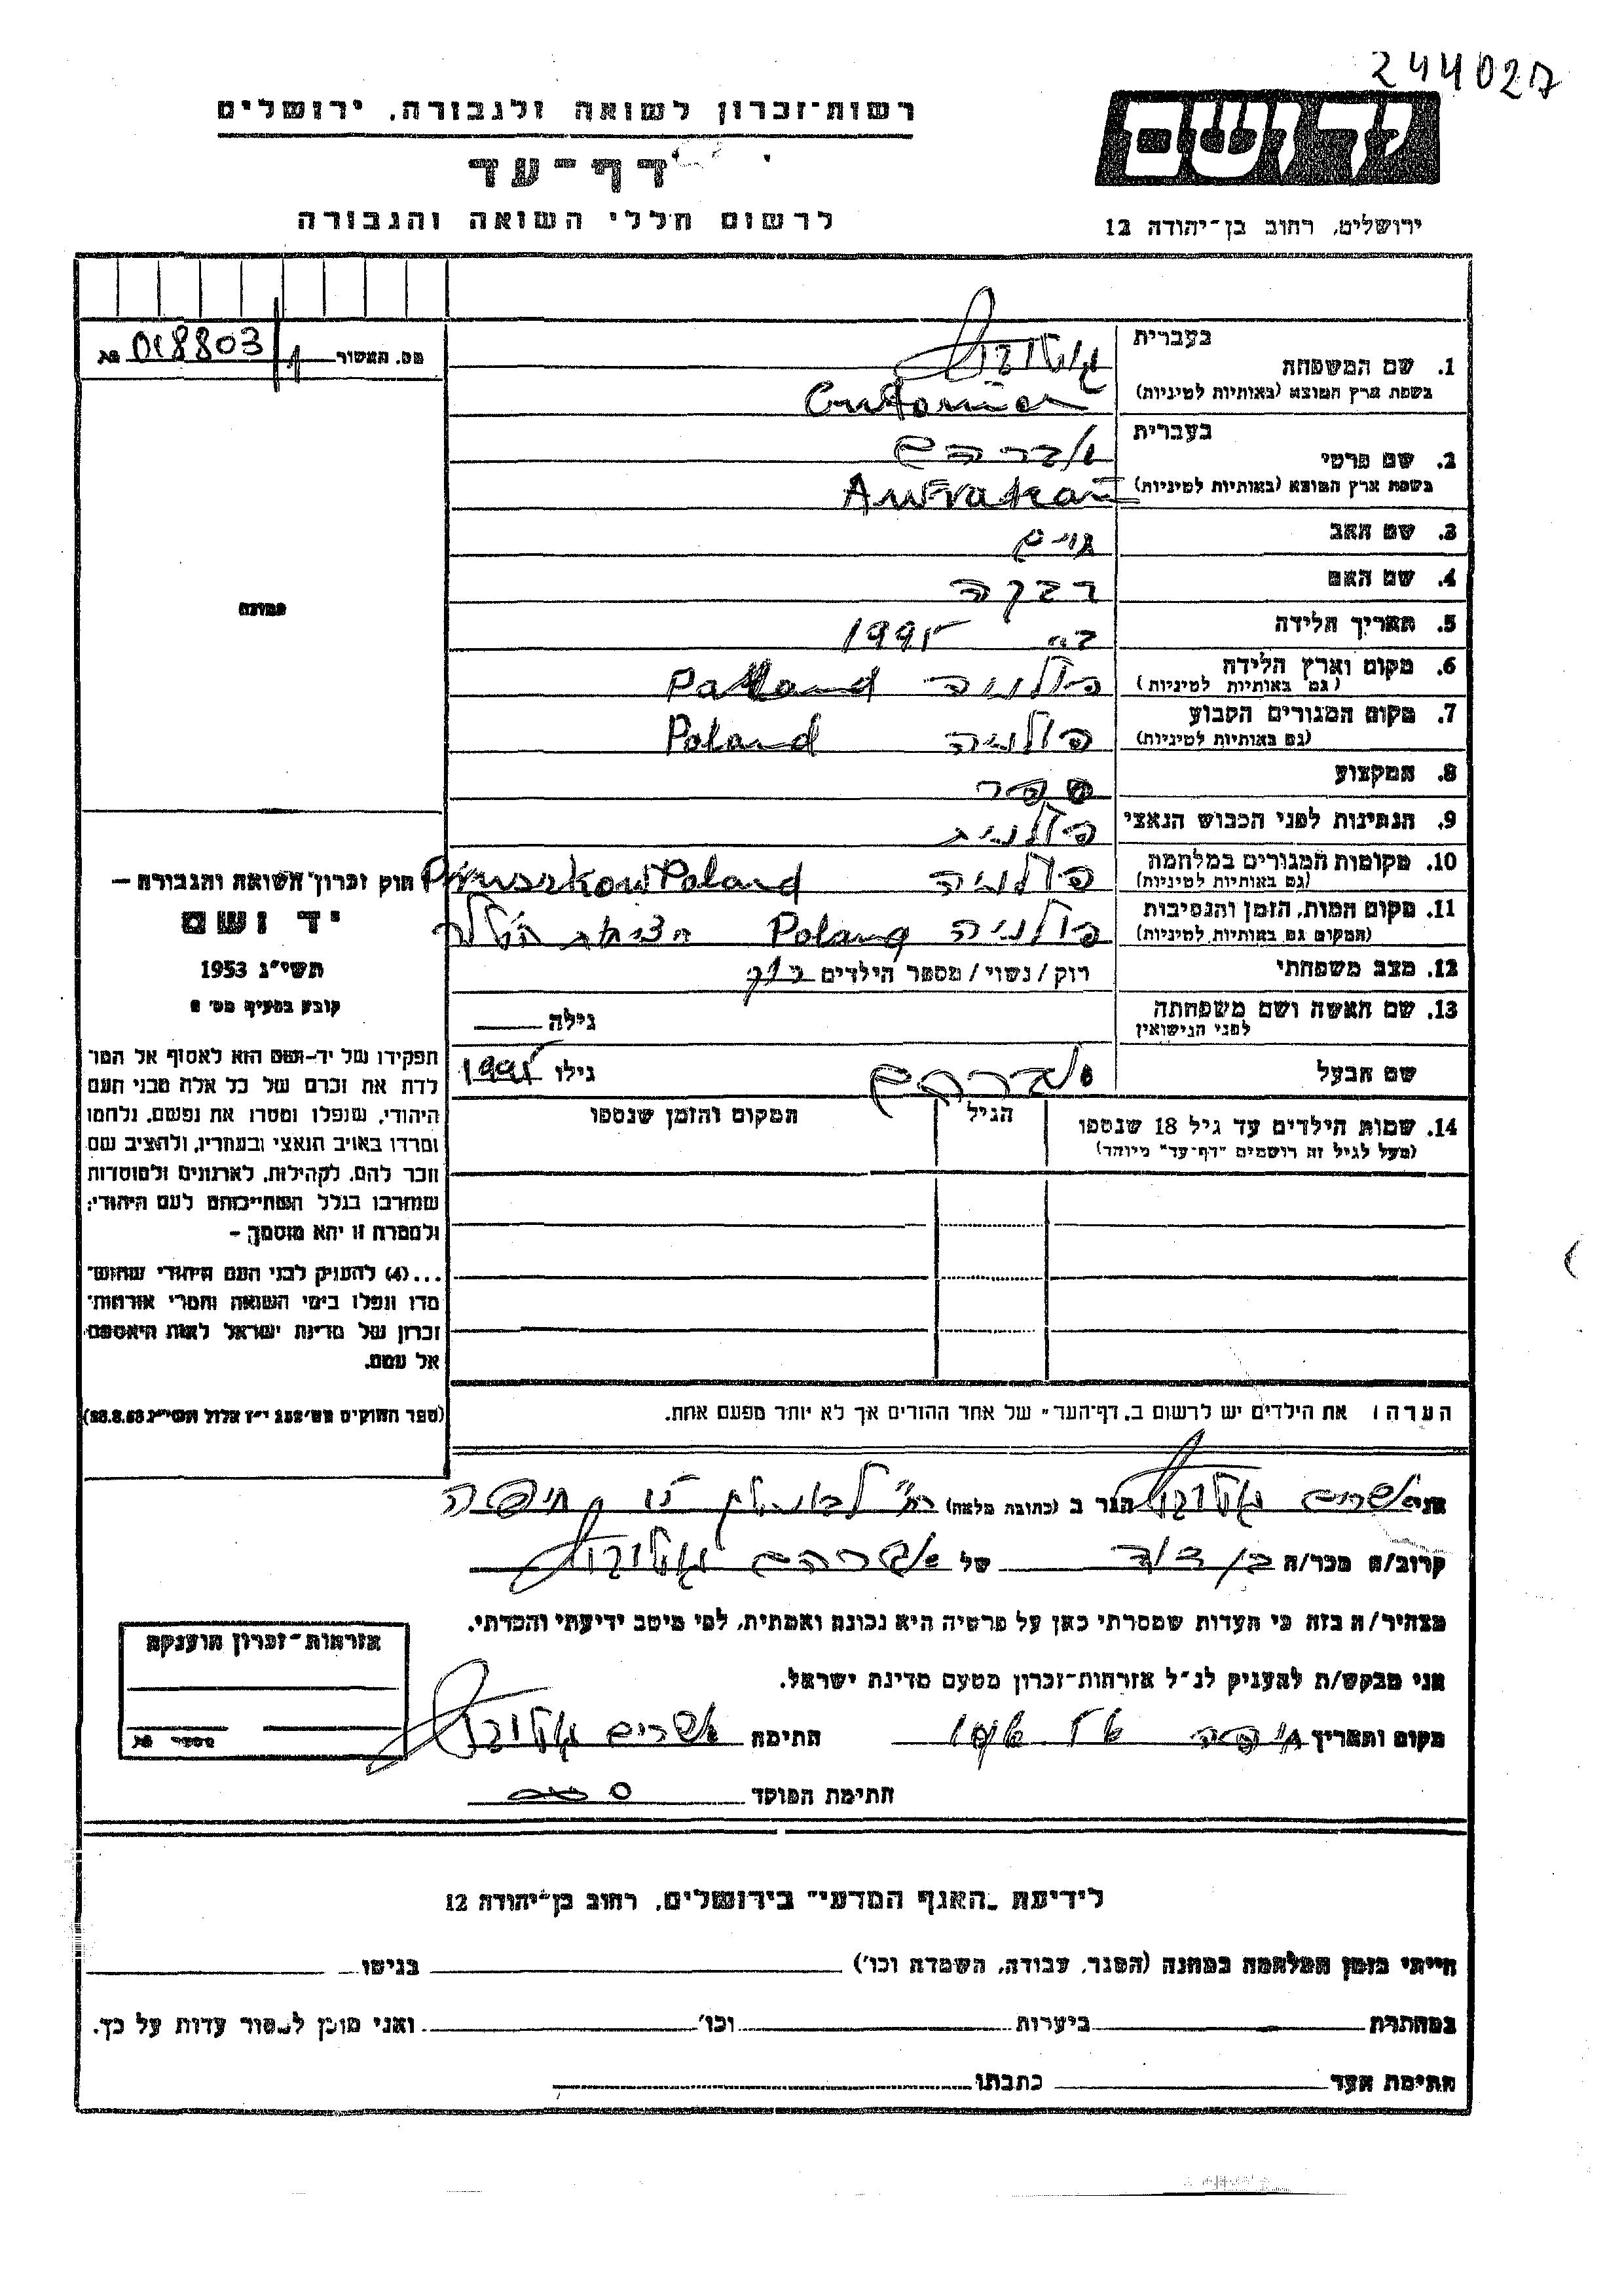 244027
רשות-זכרון לשואה ולגבורה, ירושלים
דף-עד
לרשום חללי השואה והגבורה
יד ושם
ירושלים, רחוב בן-יהודה 12
מס. האשור 1 / 018803
1. שם המשפחה
בעברית
בשפת ארץ המוצא (באותיות לטיניות)
2. שם פרטי
בעברית אברהם
בשפת ארץ המוצא (באותיות לטיניות)
3. שם האב חיים
4. שם האם רבקה
5. תאריך הלידה
6. מקום וארץ הלידה פולניה
(גם באותיות לטיניות)
7. מקום המגורים הקבוע פולניה Poland
(גם באותיות לטיניות)
8. המקצוע ספר
9. הנתינות לפני הכבוש הנאצי פולנית
10. מקומות המגורים במלחמה פולניה Poland
(גם באותיות לטיניות)
11. מקום המות, הזמן והנסיבות פולניה
(המקום גם באותיות לטיניות)
12. מצב משפחתי רוק / נשוי / מספר הילדים
13. שם האשה ושם משפחתה גילה
לפני הנישואין
שם הבעל אברהם גילו
14. שמות הילדים עד גיל 18 שנספו
(מעל לגיל זה רושמים "דף-עד" מיוחד)
הגיל
המקום והזמן שנספו
תמונה
חוק זכרון השואה והגבורה —
יד ושם
תשי"ג 1953
קובע בסעיף מס' 2
תפקידו של יד-ושם הוא לאסוף אל המו
לדת את זכרם של כל אלה מבני העם
היהודי, שנפלו ומסרו את נפשם, נלחמו
ומרדו באויב הנאצי ובעוזריו, ולהציב שם
וזכר להם, לקהילות, לארגונים ולמוסדות
שחרבו בגלל השתייכותם לעם היהודי;
ולמטרה זו יהא מוסמך; –
...(4) להעניק לבני העם היהודי שהוש-
מדו ונפלו בימי השואה והמרי אזרחות-
זכרון של מדינת ישראל לאות היאספם
אל עמם.
(ספר החוקים מס' 132 י"ז אלול תשי"ג 28.8.53)
הערה: את הילדים יש לרשום ב„דף-העד" של אחד ההורים אך לא יותר מפעם אחת.
אני אפרים הגר ב (כתובת מלאה) חיפה
קרוב/ה מכר/ה בן דוד של אברהם
מצהיר/ה בזה כי העדות שמסרתי כאן על פרטיה היא נכונה ואמתית, לפי מיטב ידיעתי והכרתי.
אני מבקש/ת להעניק לנ"ל אזרחות-זכרון מטעם מדינת ישראל.
מקום ותאריך חיפה חתימה אפרים
חתימת הפוקד
אזרחות-זכרון הוענקה
מספר
לידיעת „האגף המדעי" בירושלים, רחוב בן-יהודה 12
הייתי בזמן המלחמה במחנה (הסגר, עבודה, השמדה וכו') בגיטו
במחתרת ביערות וכו' ואני מוכן למסור עדות על כך.
חתימת העד כתבתו